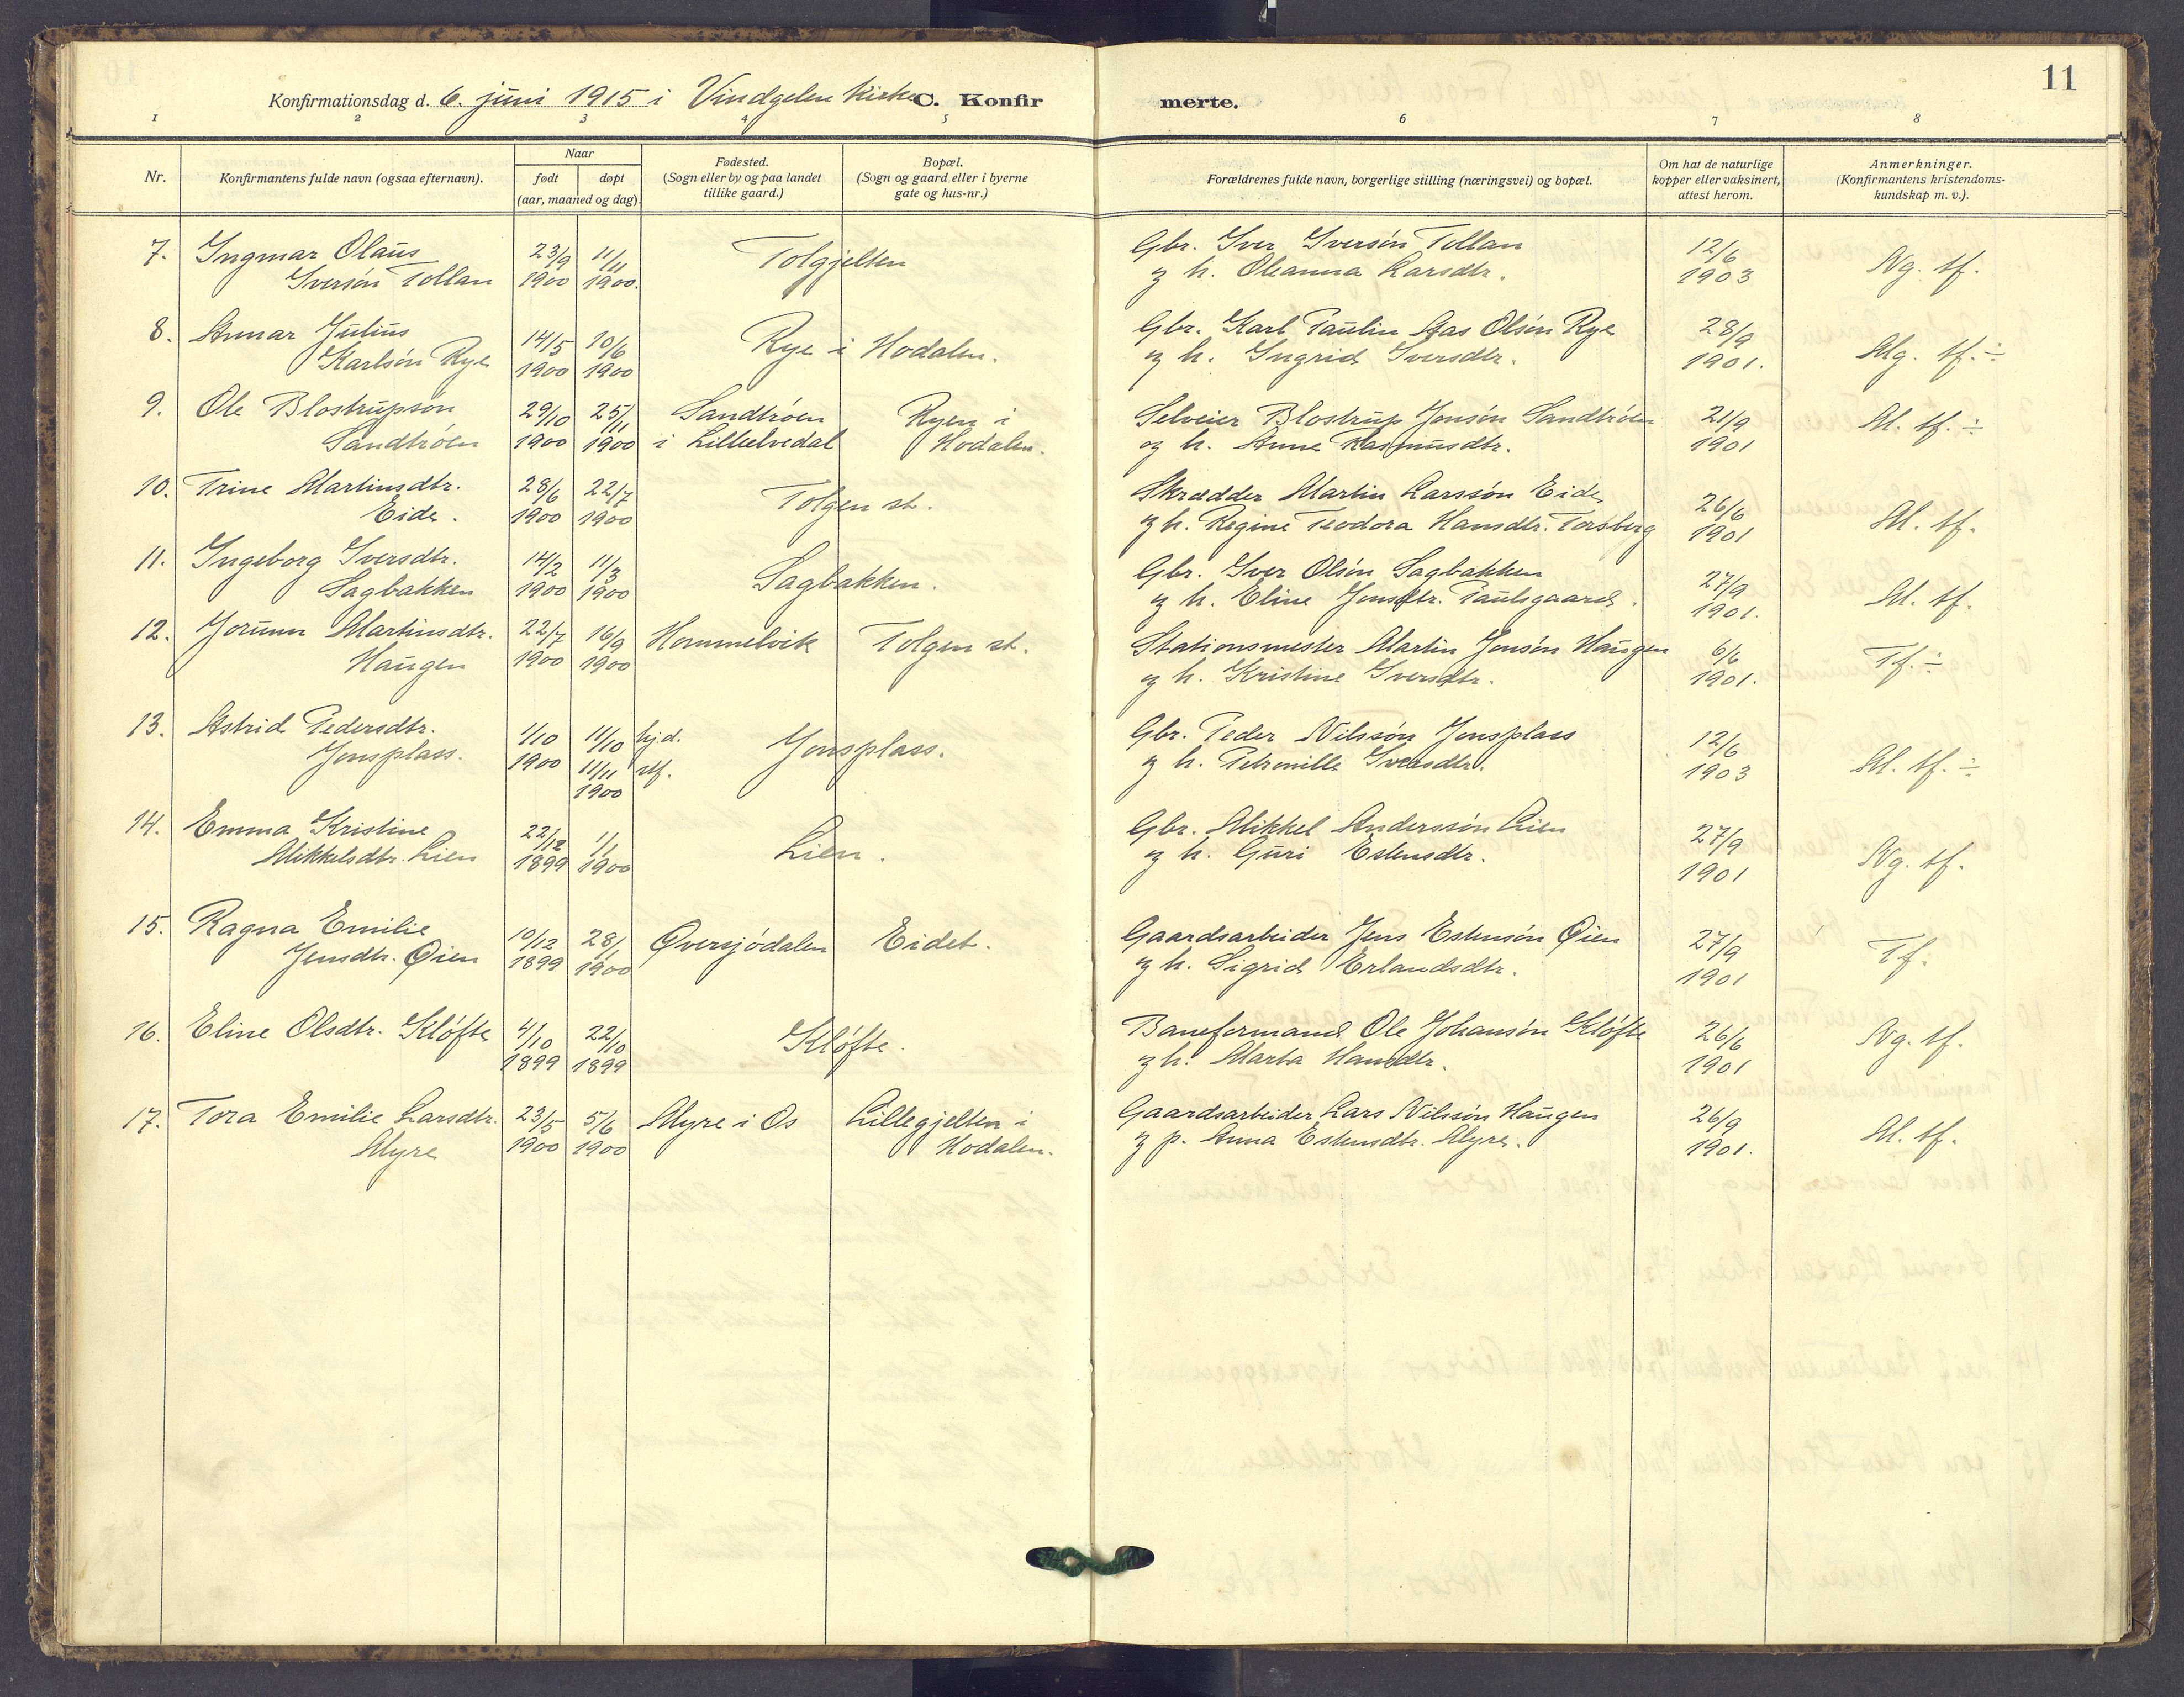 11
Konfirmationsdag d. 6. juni 1915 i Vindgelen Kirke C. Konfirmerte.
1 2 3 4 5 6 7 8
Nr.
Konfirmantens fulde navn (ogsaa efternavn).
Naar
født døpt
(aar, maaned og dag)
Fødested.
(Sogn eller by og paa landet
tillike gaard.)
Bopæl.
(Sogn og gaard eller i byerne
gate og hus-nr.)
Forældrenes fulde navn, borgerlige stilling (næringsvei) og bopæl.
Om hat de naturlige
kopper eller vaksinert,
attest herom.
Anmerkninger.
(Konfirmantens kristendoms-
kundskap m. v.).
7. Ingmar Olaus 23/9 11/11 Tolgjelten Gbr. Iver Iversón Tollan 12/6 Ng. tf.
Iversón Tollan 1900 1900. og h. Oleanna Larsdtr. 1903
8. Annar Julius 14/5 10/6 Rye i Hodalen. Gbr. Karl Paulin Aas Olsón Rye 28/9 Mg. tf. ÷
Karlsón Rye 1900 1900 og h. Ingrid Iversdtr. 1901.
9. Ole Blostrupsón 29/10 25/11 Sandtróen Ryen i Selveier Blostrup Jonsón Sandtróen 21/9 M. tf. ÷
Sandtróen 1900 1900 i Lilleelvedal Hodalen. og h. Anne Rasmusdtr. 1901
10. Trine Martinsdtr. 28/6 22/7 Tolgen st. Skrædder Martin Larssón Eide 26/6 M. tf.
Eide. 1900 1900 og h. Regine Teodora Hansdtr. Torsberg 1901
11. Ingeborg Iversdtr. 14/2 11/3 Sagbakken. Gbr. Iver Olsón Sagbakken 27/9 M. tf.
Sagbakken 1900 1900 og h. Eline Jonsdtr. Paulsgaard. 1901.
12. Jorunn Martinsdtr. 22/7 16/9 Hommelvik Tolgen st. Stationsmester Martin Jonsón Haugen 6/6 Tf. ÷
Haugen 1900 1900 og h. Kristine Iversdtr. 1901.
13. Astrid Pedersdtr. 1/10 11/10 hj.d. Jonsplass. Gbr. Peder Nilssón Jonsplass 12/6 M. tf. ÷
Jonsplass. 1900 11/11 stf. og h. Petronille Iversdtr. 1903
1900
14. Emma Kristine 22/12 1/1 Lien. Gbr. Mikkel Anderssón Lien 27/9 Ng. tf.
Mikkelsdtr. Lien 1899 1900 og h. Guri Estensdtr. 1901
15. Ragna Emilie 10/12 28/1 Øversjódalen Eidet. Gaardsarbeider Jens Estensón Øien 27/9 Tf.
Jensdtr. Øien 1899 1900 og h. Sigrid Erlandsdtr. 1901
16. Eline Olsdtr. Klófte 4/10 22/10 Klófte. Baneformand Ole Johansón Klófte 26/6 Ng. tf.
1899 1899 og h. Marta Hansdtr. 1901
17. Tora Emilie Larsdtr. 23/5 5/6 Myre i Os Lillegjelten i Gaardsarbeider Lars Nilssón Haugen 26/9 M. tf.
Myre 1900 1900 Hodalen. og p. Anna Estensdtr. Myre. 1901.